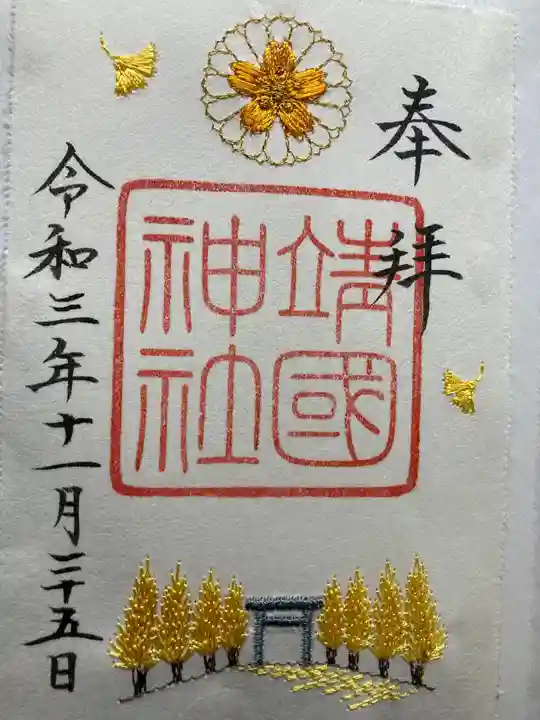 奉拝
靖國
神社
令和三年十一月二十五日